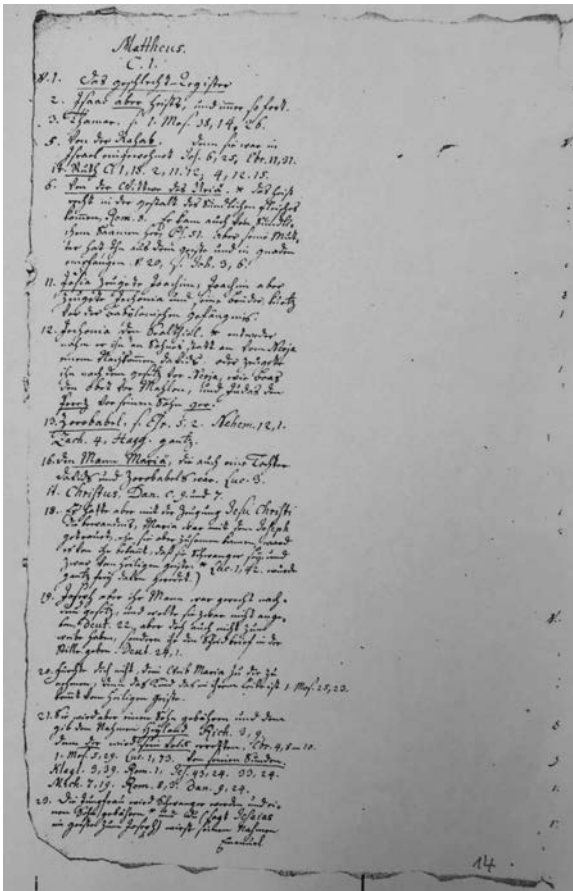 Mattheus.
C. 1.
V. 1. Das geschlecht-Register
2. Isaac aber heists, und immer so fort.
3. Thamar. s. 1. Mos. 38, 14, 26.
5. Von der Rahab. Denn sie war in
Israel eingewohnt Jos. 6, 25, Ebr. 11, 31.
it. Ruth C. 1, 18. 2, 11. 12, 4, 12. 15.
6. Von der Wittwe des Uriä. * das heist
recht in der gestalt des sündlichen fleisches
kommen, Rom. 8. Er kam auch vom sündli-
chem Saamen her, Ps. 51. aber seine Mut-
ter hat Ihn aus dem geiste und in gnaden
empfangen. V. 20, s. Joh. 3, 6.
11. Josia zeugete Joachim, Joachim aber
zeugete Jechonia und seine brüder,
vor der babylonischen gefängnis.
12. Jechonia den Sealthiel. * entweder
nahm er ihn an Sohnes statt an vom Neria
einem Nachkommen Davids. oder zeugete
ihn nach dem gesetz vor Neria, wie Boas
den Obed vor Mahlon, und Judas den
Perez vor seinen Sohn ger.
13. Zorobabel. s. Esr. 5. 2. Nehem. 12, 1.
Zach. 4, Hagg. gantz.
16. den Mann Mariä, die auch eine Tochter
Davids und Zorobabels war. Luc. 3.
it. Christus. Dan. C. 9. und 7.
18. Es hatte aber mit der Zeugung Jesu Christi
Maria war mit dem Joseph
getrauet, ehe sie aber zusammen kamen, ward
es von ihr bekant, daß sie schwanger sey, und
zwar vom heiligen geiste. * (Luc. 1, 42. wurde
gantz frey davon geredet.)
19. Joseph aber ihr Mann war gerecht nach
dem gesetz, und wolte sie zwar nicht ange-
ben, Deut. 22, aber doch auch nicht zum
weibe haben, sondern ihr den Scheidbrief in der
stille geben. Deut. 24, 1.
20. fürchte dich nicht, dein Weib Maria zu dir zu
nehmen, denn das Kind das in ihrem Leibe ist 1. Mos. 25, 23.
komt vom heiligen geiste.
21. Sie wird aber einen Sohn gebähren und dem
gib den Nahmen Heyland Rich. 3, 9,
denn der wird sein Volk erretten. Ebr. 4, 8-10.
1. Mos. 5, 29. Luc. 1, 73. Von seinen Sünden.
Klagl. 3, 39. Rom. 1. Jes. 43, 24. 33, 24.
Mich. 7, 19. Rom. 8, 3. Dan. 9, 24.
23. Die Jungfrau wird schwanger werden und ei-
nen Sohn gebähren * und Du (sagt Jesaias
im geiste zum Joseph) wirst seinen Nahmen
Emanuel.
14